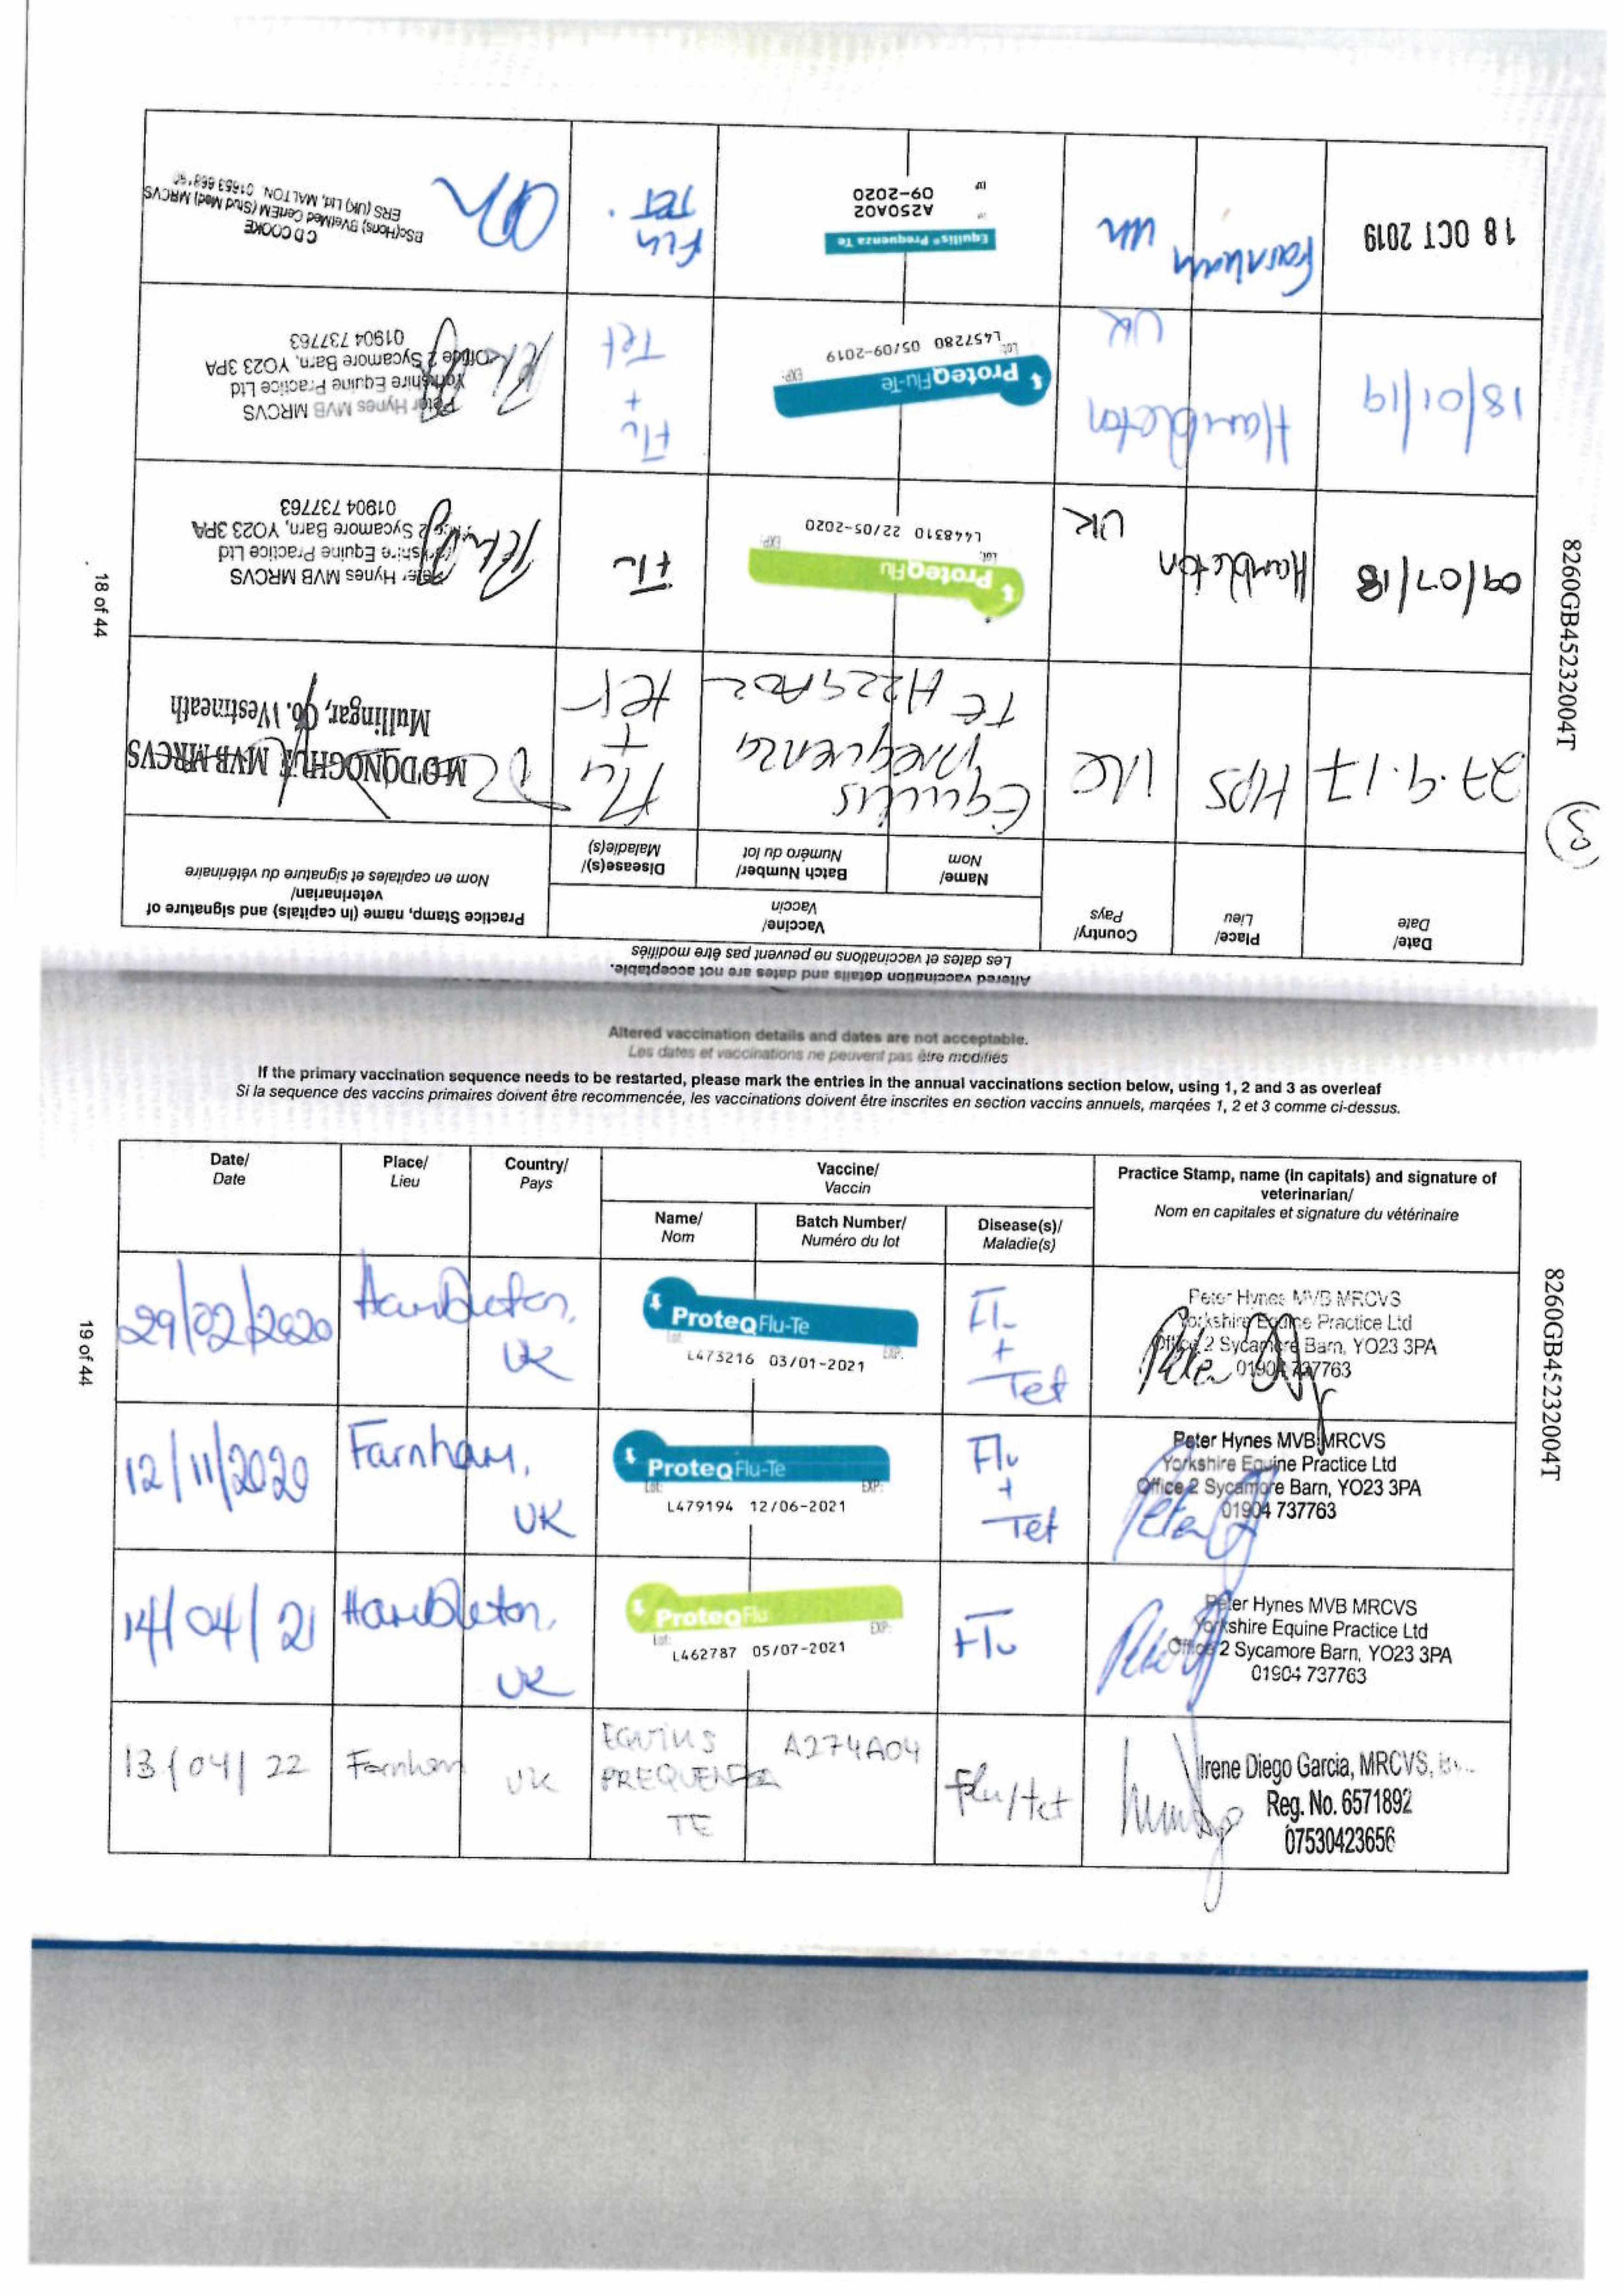 Altered vaccination details and dates are not acceptable.
Les dates et vaccinations ne peuvent pas être modifiés
Date/
Date
Place/
Lieu
Country/
Pays
Vaccine/
Vaccin
Name/
Nom
Batch Number/
Numéro du lot
Disease(s)/
Maladie(s)
Practice Stamp, name (in capitals) and signature of
veterinarian/
Nom en capitales et signature du vétérinaire
(3)
27.9.17
HPS
UK
Equilis
Prequenza
TE H225A02
Flu
+
tet
M O'DONOGHUE MVB MRCVS
Mullingar, Co. Westmeath
09/07/18
Hambleton
UK
ProteqFlu
Lot:
EXP:
L448310 22/05-2020
Flu
Peter Hynes MVB MRCVS
Yorkshire Equine Practice Ltd
Office 2 Sycamore Barn, YO23 3PA
01904 737763
18/01/19
Hambleton
UK
ProteqFlu-Te
Lot:
EXP:
L457280 05/09-2019
Flu
+
Tet
Peter Hynes MVB MRCVS
Yorkshire Equine Practice Ltd
Office 2 Sycamore Barn, YO23 3PA
01904 737763
18 OCT 2019
Farnham
UK
Equilis® Prequenza Te
A250A02
09-2020
Flu
Tet.
C D COOKE
BSc(Hons) BVetMed CertEM (Stud Med) MRCVS
ERS (UK) Ltd, MALTON.
8260GB45232004T
18 of 44
Altered vaccination details and dates are not acceptable.
Les dates et vaccinations ne peuvent pas être modifiés
If the primary vaccination sequence needs to be restarted, please mark the entries in the annual vaccinations section below, using 1, 2 and 3 as overleaf
Si la sequence des vaccins primaires doivent être recommencée, les vaccinations doivent être inscrites en section vaccins annuels, marqées 1, 2 et 3 comme ci-dessus.
Date/
Date
Place/
Lieu
Country/
Pays
Vaccine/
Vaccin
Name/
Nom
Batch Number/
Numéro du lot
Disease(s)/
Maladie(s)
Practice Stamp, name (in capitals) and signature of
veterinarian/
Nom en capitales et signature du vétérinaire
29/02/2020
Hambleton,
UK
ProteqFlu-Te
Lot:
EXP:
L473216 03/01-2021
Flu
+
Tet
Peter Hynes MVB MRCVS
Yorkshire Equine Practice Ltd
Office 2 Sycamore Barn, YO23 3PA
01904 737763
12/11/2020
Farnham,
UK
ProteqFlu-Te
Lot:
EXP:
L479194 12/06-2021
Flu
+
Tet
Peter Hynes MVB MRCVS
Yorkshire Equine Practice Ltd
Office 2 Sycamore Barn, YO23 3PA
01904 737763
14/04/21
Hambleton,
UK
ProteqFlu
Lot:
EXP:
L462787 05/07-2021
Flu
Peter Hynes MVB MRCVS
Yorkshire Equine Practice Ltd
Office 2 Sycamore Barn, YO23 3PA
01904 737763
13/04/22
Farnham
UK
EQUILIS
PREQUENZA
TE
A274A04
Flu/tet
Irene Diego Garcia, MRCVS,
Reg. No. 6571892
07530423656
8260GB45232004T
19 of 44